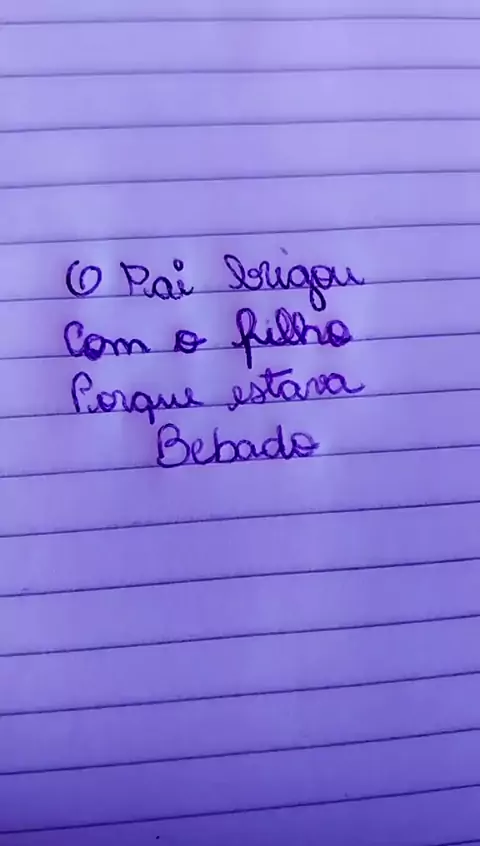 O Pai brigou
Com o filho
Porque estava
Bebado